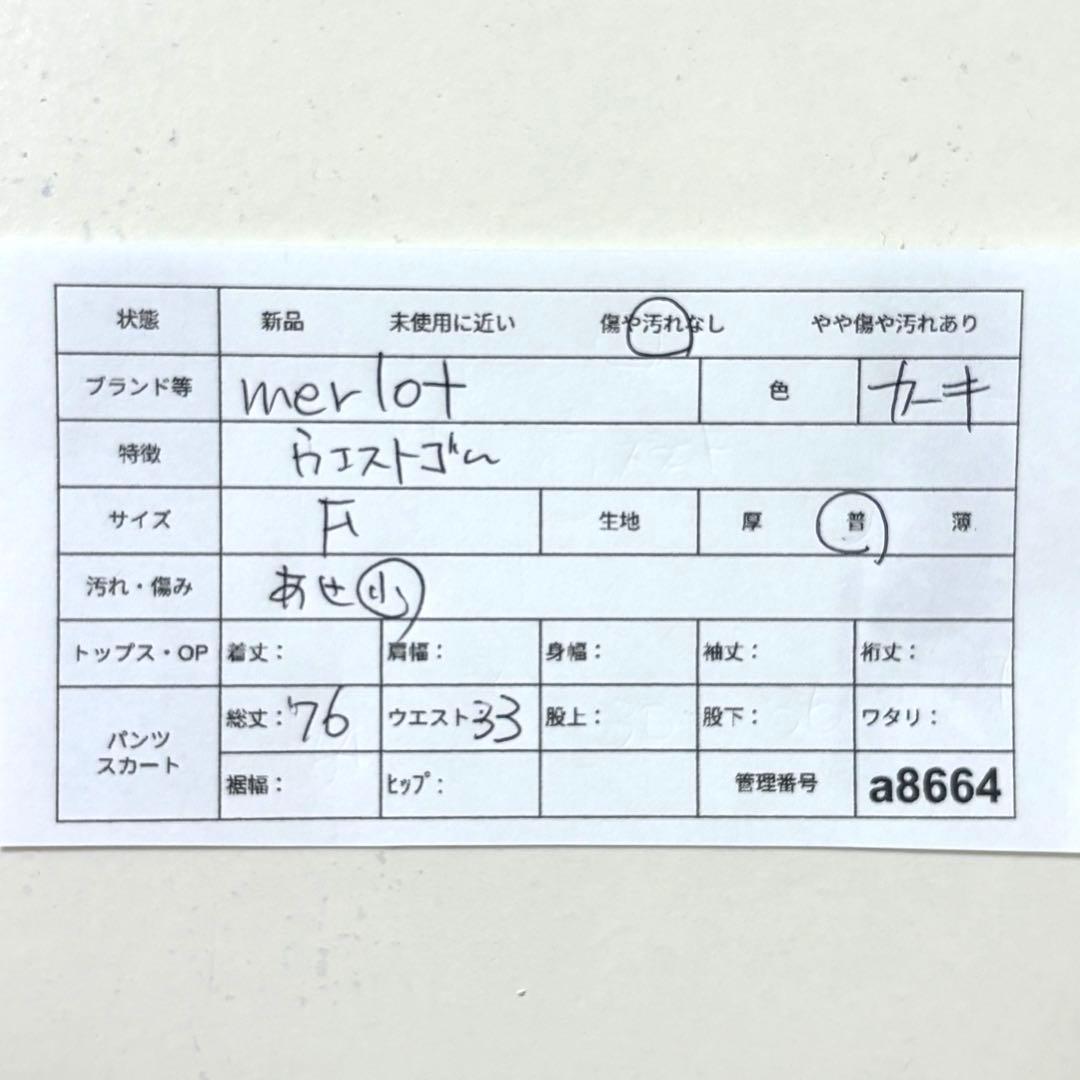 状態 新品 未使用に近い 傷や汚れなし やや傷や汚れあり
ブランド等 merlot 色 カーキ
特徴 ウエストゴム
サイズ F 生地 厚 普 薄
汚れ・傷み あせ小
トップス・OP 着丈: 肩幅: 身幅: 袖丈: 裄丈:
パンツ スカート
総丈:76 ウエスト:33 股上: 股下: ワタリ:
裾幅: ヒップ: 管理番号 a8664